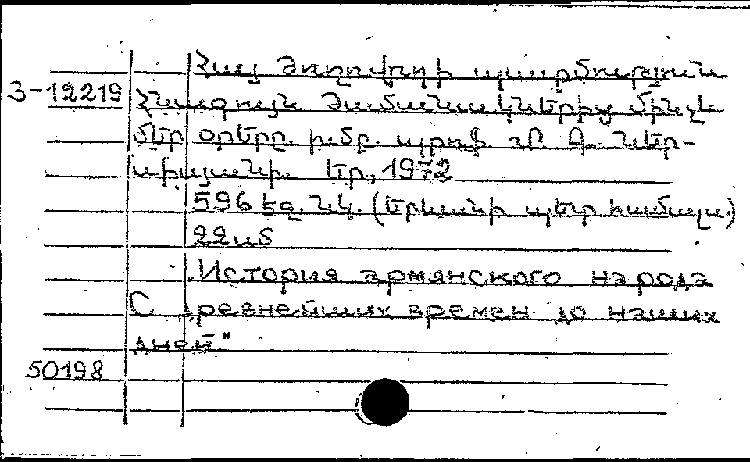 Հայ ժողովրդի պատմություն
3-12219 Հնագույն ժամանակներից մինչև
մեր օրերը. խմբ. պրոֆ. Մ. Գ. Ներ-
սիսյանի. Եր., 1972
596 էջ. նկ. (Երևանի պետ. համալս.)
22 սմ
"История армянского народа
С древнейших времен до наших
дней"
50198